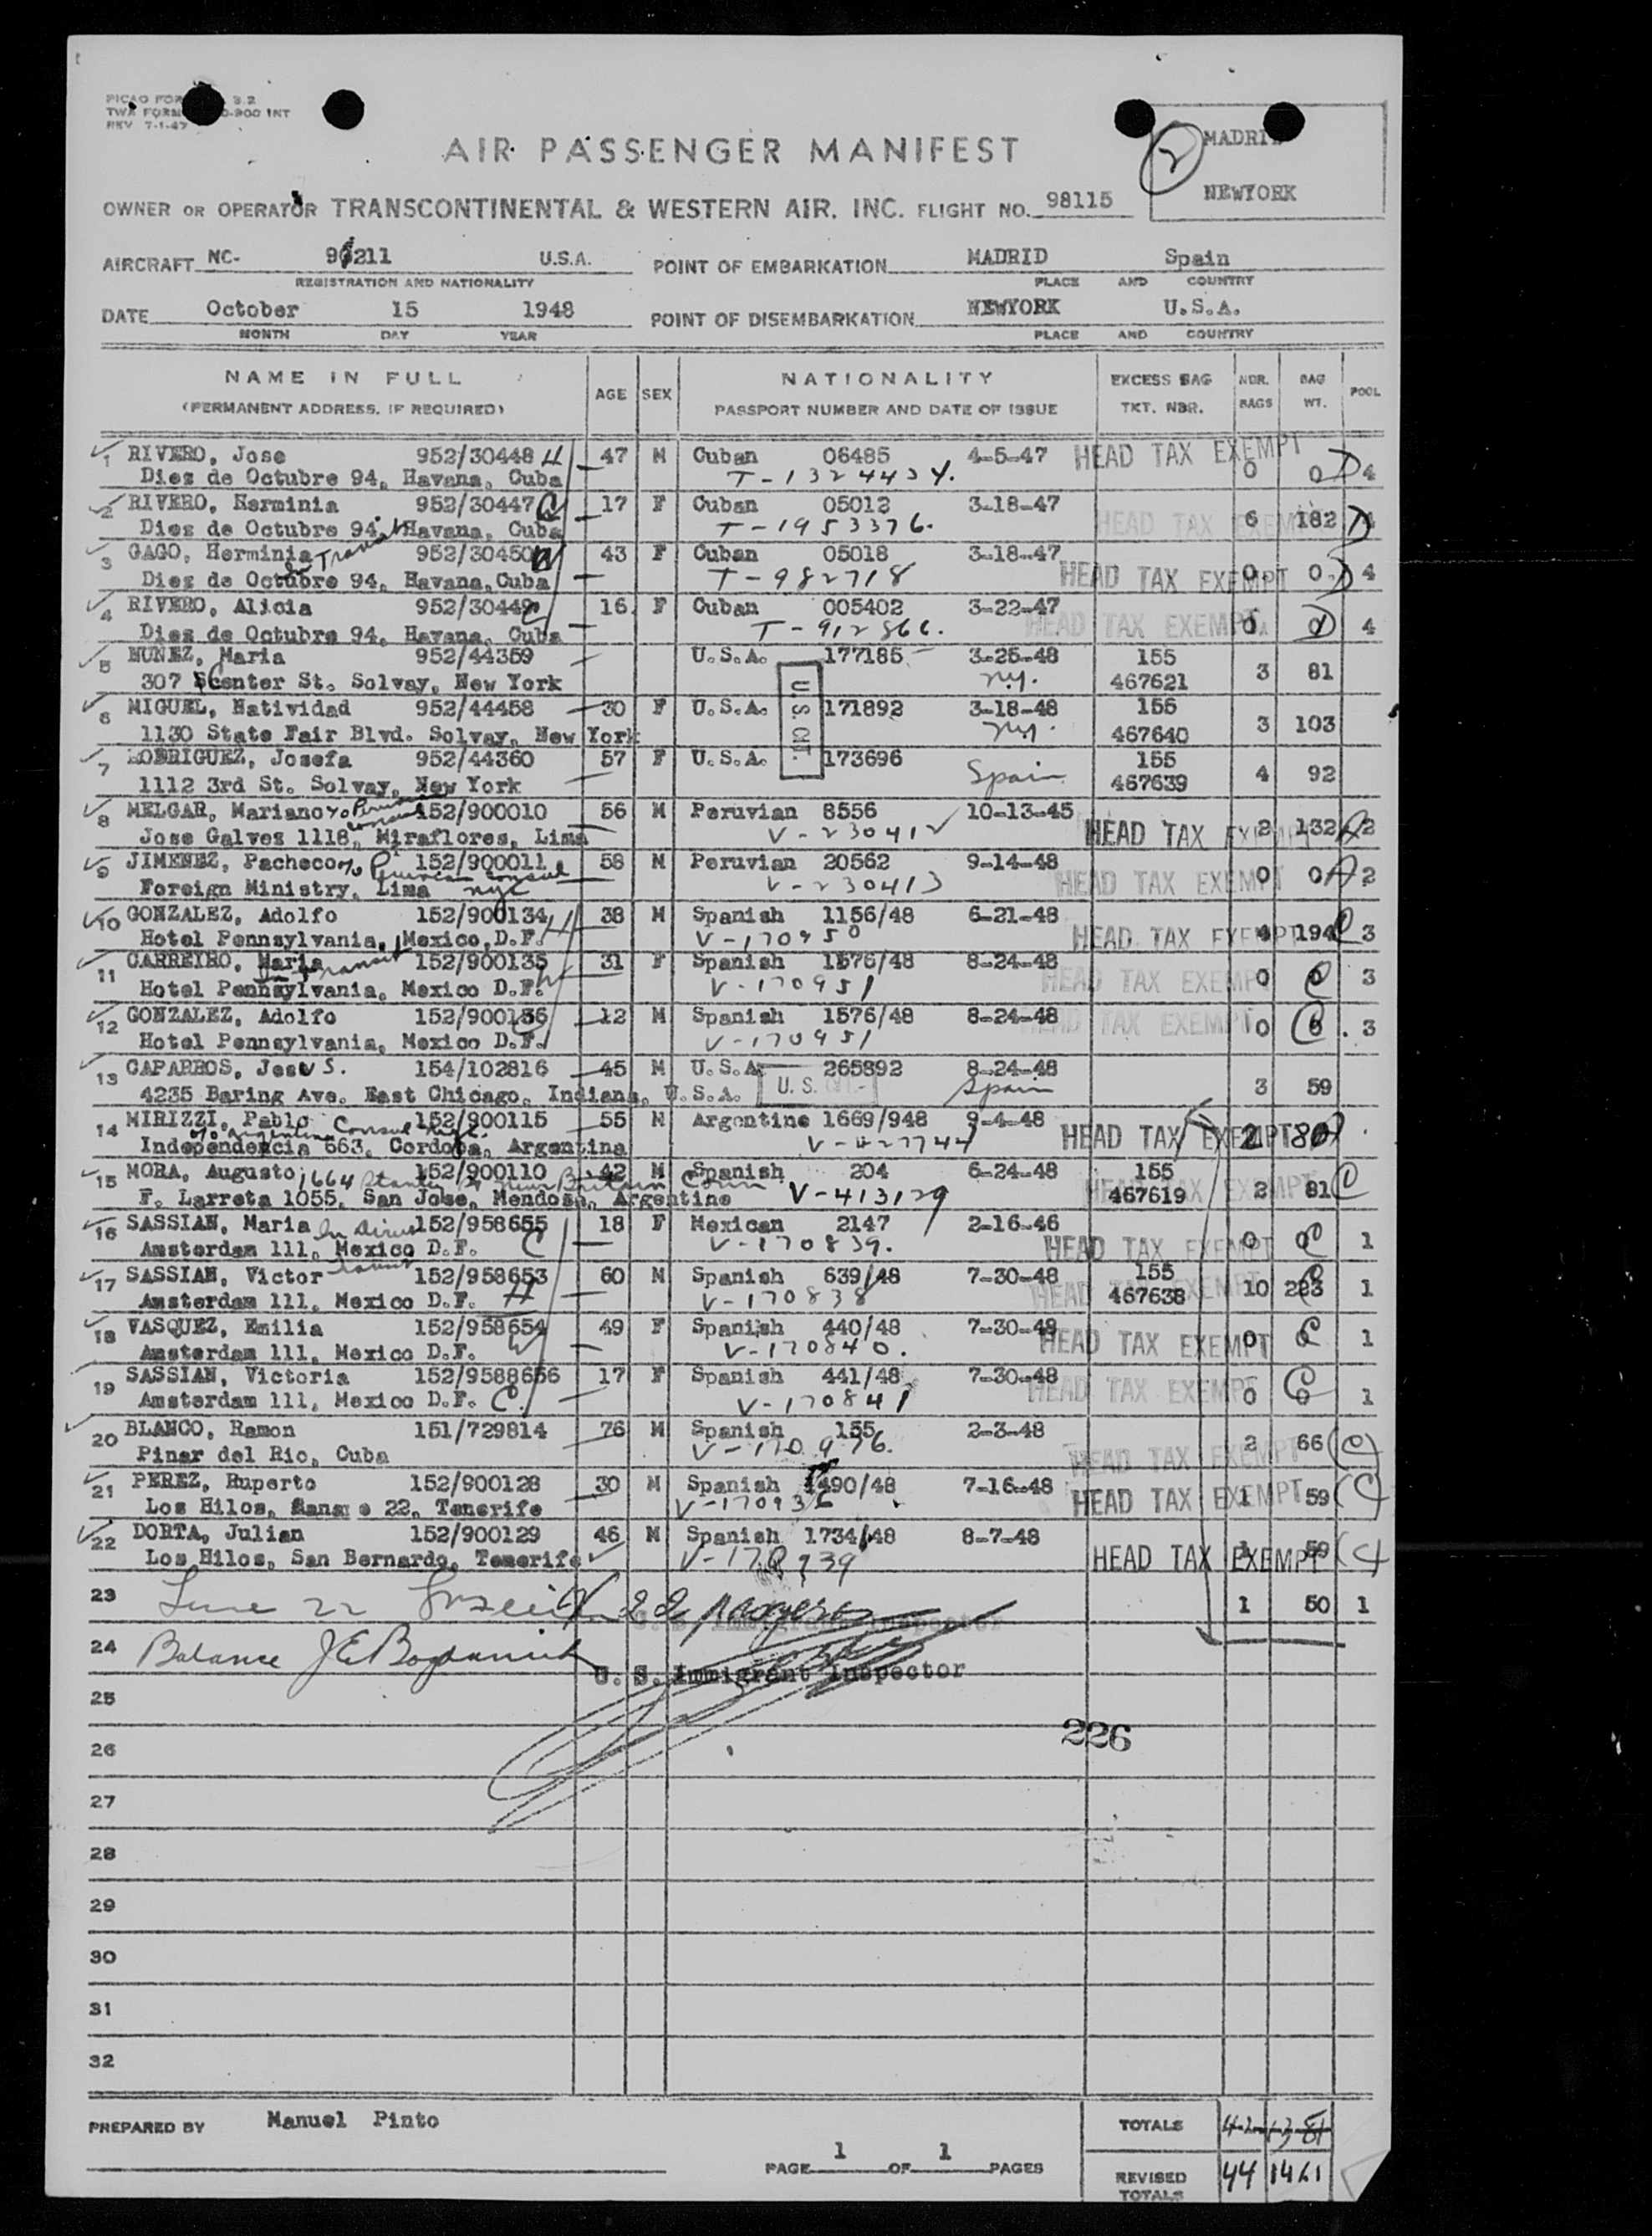 PICAO FOR 3.2
TWA FORM 0-900 INT
REV 7-1-47
AIR PASSENGER MANIFEST
2
MADRI
NEWYORK
OWNER OR OPERATOR TRANSCONTINENTAL & WESTERN AIR, INC. FLIGHT NO. 98115
AIRCRAFT NC- 90211 U.S.A. POINT OF EMBARKATION MADRID Spain
REGISTRATION AND NATIONALITY PLACE AND COUNTRY
DATE October 15 1948 POINT OF DISEMBARKATION NEWYORK U.S.A.
MONTH DAY YEAR PLACE AND COUNTRY
NAME IN FULL AGE SEX NATIONALITY EXCESS BAG NBR. BAG POOL
(PERMANENT ADDRESS, IF REQUIRED) PASSPORT NUMBER AND DATE OF ISSUE TKT. NBR. BAGS WT.
1 RIVERO, Jose 952/30448 H 47 M Cuban 06485 4-5-47 HEAD TAX EXEMPT 0 0 D 4
Diez de Octubre 94, Havana, Cuba T-1324434.
2 RIVERO, Herminia 952/30447 C 17 F Cuban 05012 3-18-47 HEAD TAX EXEMPT 6 182 D 4
Diez de Octubre 94, Havana, Cuba T-1953376.
3 GAGO, Herminia In Transit 952/30450 W 43 F Cuban 05018 3-18-47 HEAD TAX EXEMPT 0 0 D 4
Diez de Octubre 94, Havana, Cuba T-982718
4 RIVERO, Alicia 952/30449 C 16 F Cuban 005402 3-22-47 HEAD TAX EXEMPT 0 0 D 4
Diez de Octubre 94, Havana, Cuba T-912866.
5 NUÑEZ, Maria 952/44359 U.S.A. 177185 3-25-48 155 3 81
307 Center St. Solvay, New York N.Y. 467621
U.S. CIT.
6 MIGUEL, Natividad 952/44458 30 F U.S.A. 171892 3-18-48 155 3 103
1130 State Fair Blvd. Solvay, New York N.Y. 467640
7 RODRIGUEZ, Josefa 952/44360 57 F U.S.A. 173696 Spain 155 4 92
1112 3rd St. Solvay, New York 467639
8 MELGAR, Mariano c/o Peruvian Consul 152/900010 56 M Peruvian 8556 10-13-45 HEAD TAX EXEMPT 2 132 A 2
Jose Galvez 1118, Miraflores, Lima V-230412
9 JIMENEZ, Pacheco c/o Peruvian Consul NYC 152/900011 58 M Peruvian 20562 9-14-48 HEAD TAX EXEMPT 0 0 A 2
Foreign Ministry, Lima V-230413
10 GONZALEZ, Adolfo 152/900134 H 38 M Spanish 1156/48 6-21-48 HEAD TAX EXEMPT 4 194 C 3
Hotel Pennsylvania, Mexico, D.F. V-170950
11 CARREIRO, Maria In Transit 152/900135 W 31 F Spanish 1576/48 8-24-48 HEAD TAX EXEMPT 0 0 C 3
Hotel Pennsylvania, Mexico D.F. V-170951
12 GONZALEZ, Adolfo 152/900136 C 12 M Spanish 1576/48 8-24-48 HEAD TAX EXEMPT 0 0 C 3
Hotel Pennsylvania, Mexico D.F. V-170951
13 CAPARROS, Jesus S. 154/102816 45 M U.S.A. 265892 8-24-48 3 59
4235 Baring Ave. East Chicago, Indiana, U.S.A. U.S. CIT. Spain
14 MIRIZZI, Pablo 152/900115 55 M Argentine 1669/948 9-4-48 HEAD TAX EXEMPT 2 80
c/o Argentina Consul NYC
Independencia 663, Cordoba, Argentina V-427744
15 MORA, Augusto 152/900110 42 M Spanish 204 6-24-48 155 2 81 C
1664 Stanley St New Britain Conn
F. Larreta 1055, San Jose, Mendoza, Argentine V-413129 467619 HEAD TAX EXEMPT
16 SASSIAN, Maria In Direct Transit 152/958655 18 F Mexican 2147 2-16-46 HEAD TAX EXEMPT 0 0 C 1
Amsterdam 111, Mexico D.F. C V-170839.
17 SASSIAN, Victor 152/958653 60 M Spanish 639/48 7-30-48 155 10 223 C 1
Amsterdam 111, Mexico D.F. H V-170838 467638 HEAD TAX EXEMPT
18 VASQUEZ, Emilia 152/958654 49 F Spanish 440/48 7-30-48 HEAD TAX EXEMPT 0 0 C 1
Amsterdam 111, Mexico D.F. W V-170840.
19 SASSIAN, Victoria 152/9588656 17 F Spanish 441/48 7-30-48 HEAD TAX EXEMPT 0 0 C 1
Amsterdam 111, Mexico D.F. C. V-170841
20 BLANCO, Ramon 151/729814 76 M Spanish 155 2-3-48 HEAD TAX EXEMPT 2 66 (C)
Pinar del Rio, Cuba V-170976.
21 PEREZ, Ruperto 152/900128 30 M Spanish 1490/48 7-16-48 HEAD TAX EXEMPT 1 59 (C)
Los Hilos, 22, Tenerife V-170936
22 DORTA, Julian 152/900129 46 M Spanish 1734/48 8-7-48 HEAD TAX EXEMPT 1 59 (C)
Los Hilos, San Bernardo, Tenerife V-170939
23 Line 22 22 1 50 1
U. S. Immigrant Inspector
24 Balance
U. S. Immigrant Inspector
25
226
26
27
28
29
30
31
32
PREPARED BY Manuel Pinto TOTALS 42 1381
PAGE 1 OF 1 PAGES REVISED TOTALS 44 1461